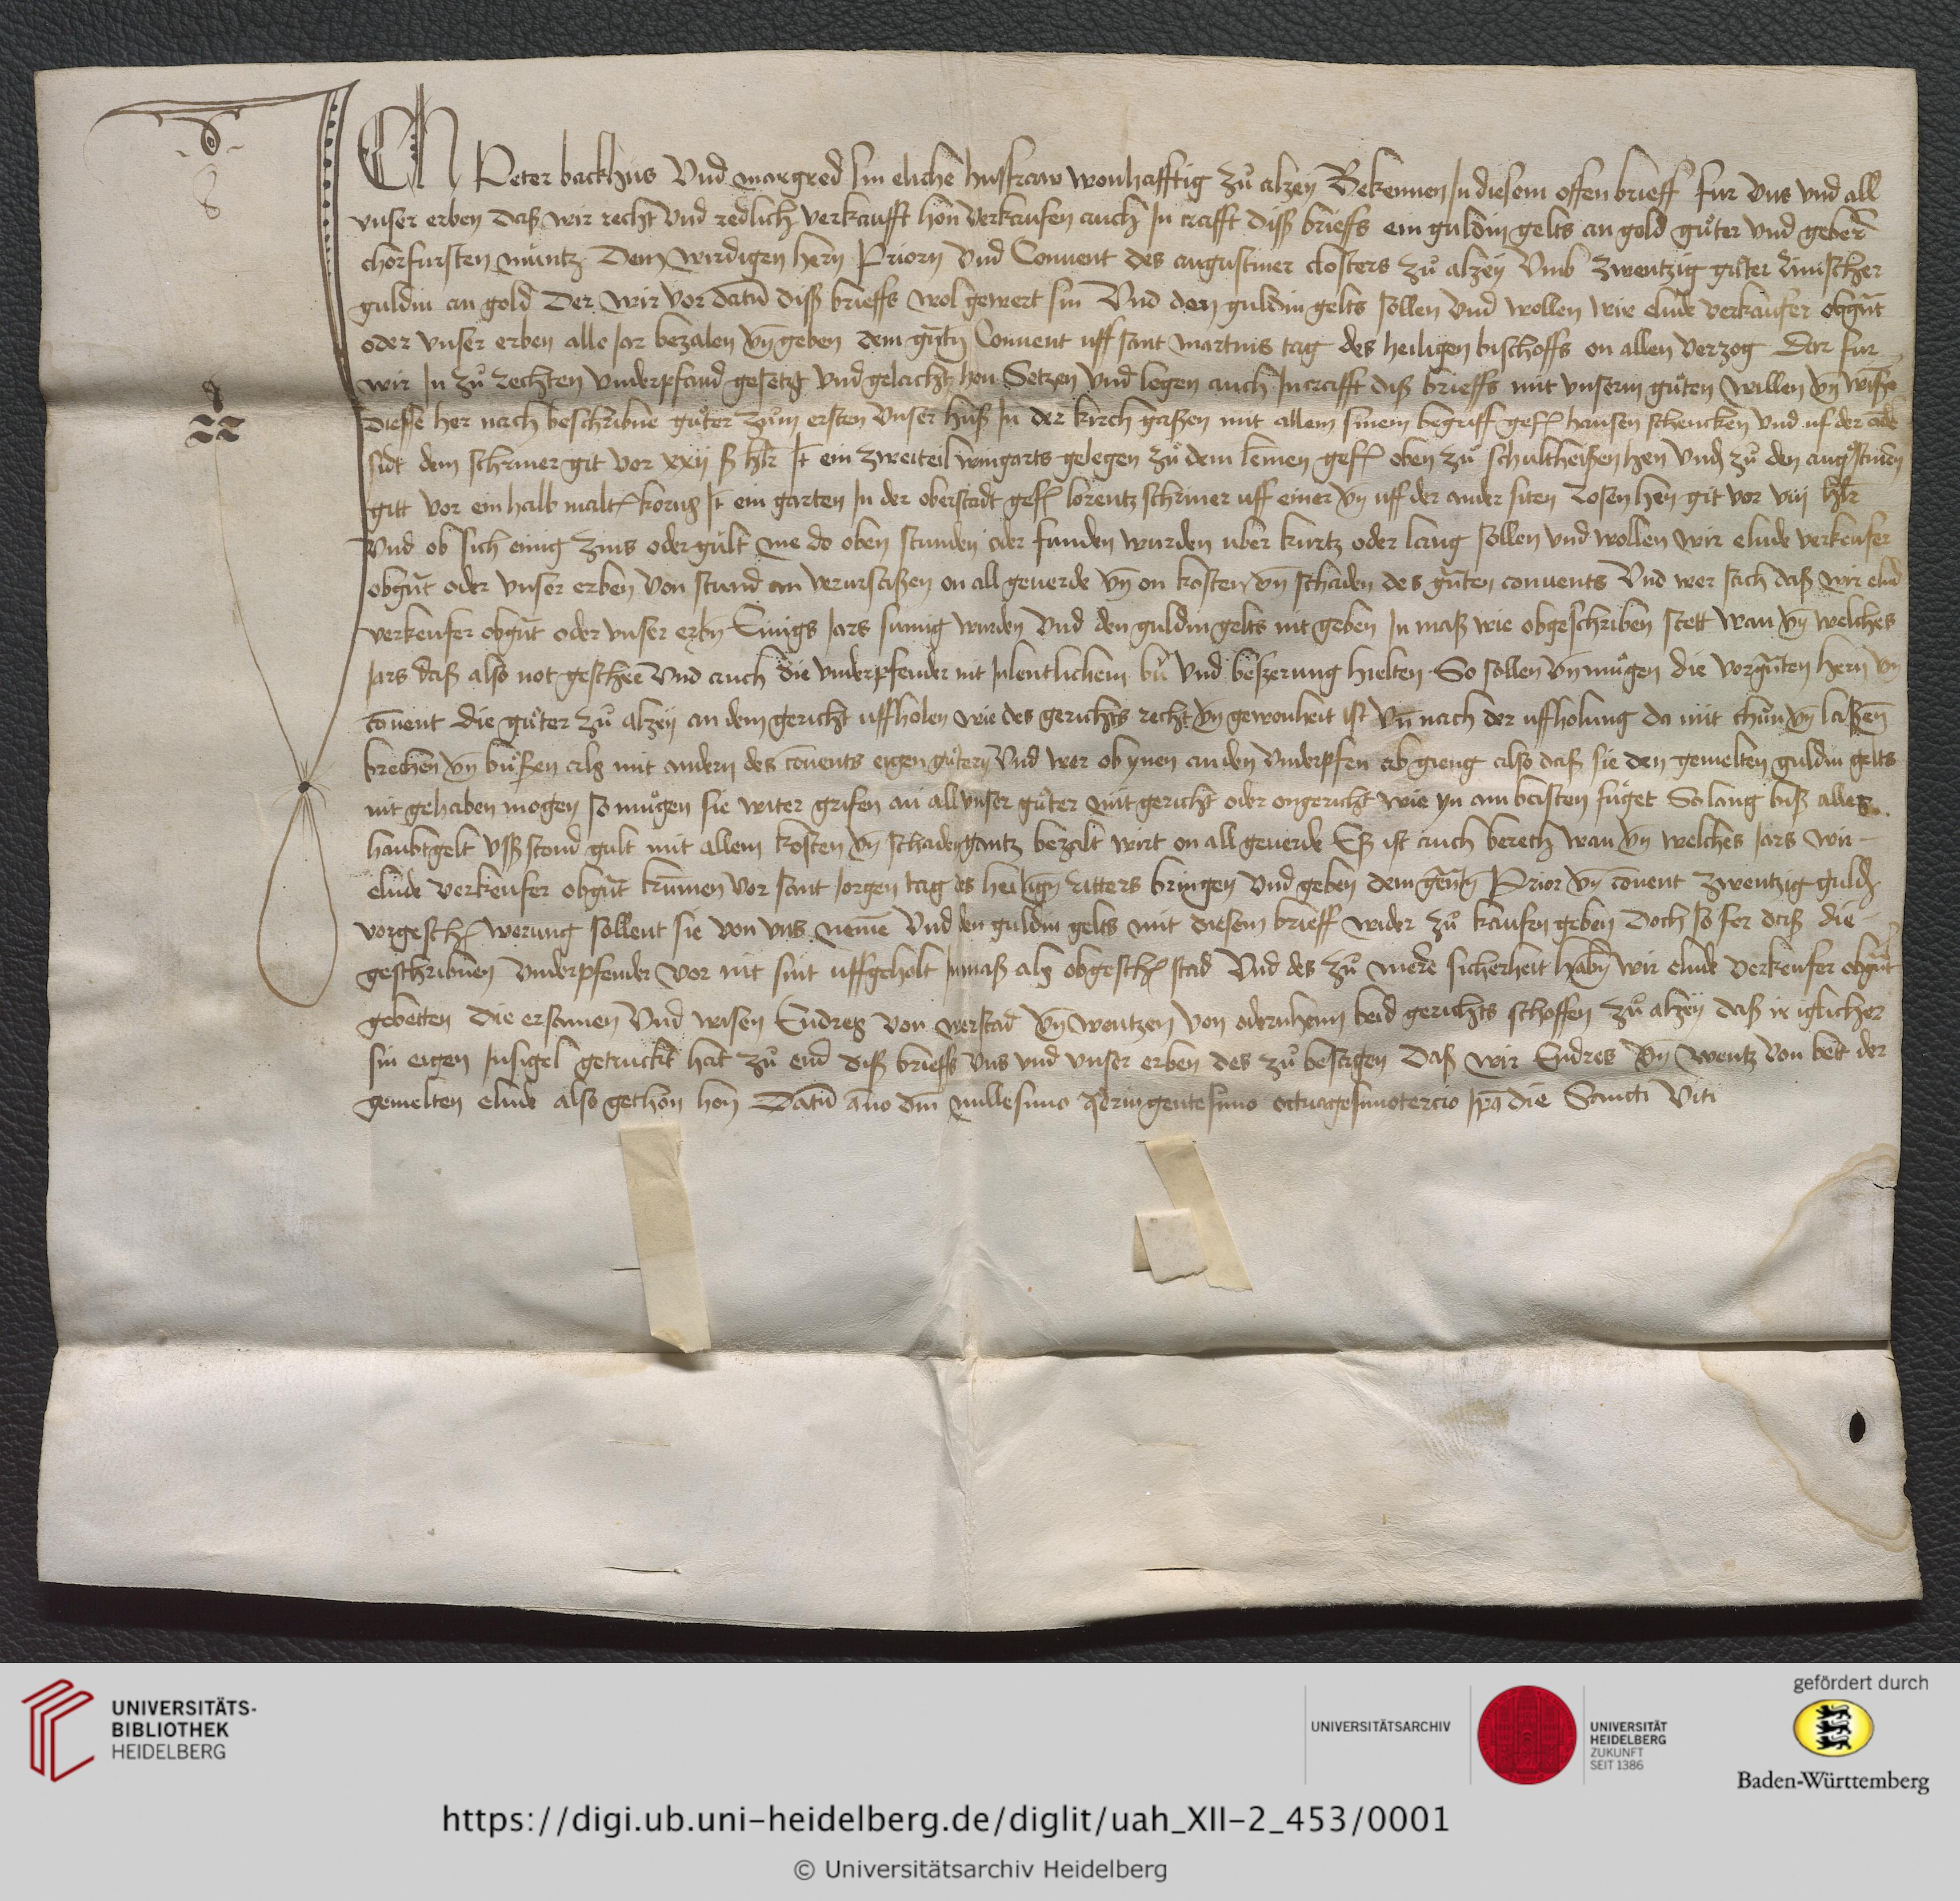 ICH Peter backhus Vnd margred sin eliche husfraw wonhafftig zů alzey Bekennen In diesem offen brieff fur vns vnd all
vnser erben daß wir recht vnd redlich verkaufft hon verkaufen auch In crafft diß brieffs ein guldin gelts an gold gůter vnd geber
chorfursten muntz Dem wirdigen hern Priorn Vnd Conuent des augustiner closters zů alzey Vmb zwentzig gůter Rinischer
guldin an gold Der wir vor datū diß brieffs wol gewert sin Vnd den guldin gelts sollen Vnd wollen wir elude verkaufer obgn̄t
oder vnser erben alle Jar bezalen vn̄ geben dem gn̄tn̄ Conuent uff sant martins tag des heiligen bischoffs on allen verzog Dar fur
wir In zů Rechten vnderpfand gesetzt vnd gelacht hon Setzen Vnd legen auch In crafft diß brieffs mit vnserm gůten willen vn̄ wißē
diesse her nach beschribne gůter zům ersten vnser huß In der kirch gaßen mit allem sinem begriff gef̄ hansen schencken Vnd uf der ande
sidt dem schriner git vor xxij ß hlr It ein zweiteil wingarts gelegen zů dem leimen gef̄ oben zů schultheißen hen Vnd zů den augustinern
gitt vor ein halb malt̄ korns It ein garten In der oberstadt gef̄ lorentz schriner uff einer vn̄ uff der ander siten Losen hen git vor viij hlr
Vnd ob sich einig zins oder gult me do oben stunden oder funden wurden uber kurtz oder lang sollen vnd wollen wir elude verkeufer
obgn̄t oder vnser erben von stund an verursaßen on all geuerde vn̄ on kosten vn̄ schaden des gn̄ten conuents Vnd wer sach daß wir elud
verkeufer obgn̄t oder vnser erbn̄ Einigs Jars sumig wurden Vnd den guldin gelts nit geben In maß wie obgeschriben stett wan vn̄ welches
Jars daß also not geschee Vnd auch die vnderpfender nit Inlentlichem bů Vnd beßerung hielten So sollen vn̄ mugen die vorgn̄ten hern vn̄
cōuent die gůter zů alzey an dem gericht uffholen wie des gerichts recht vn̄ gewonheit ist Vn̄ nach der uffholung da mit thůn vn̄ laßen
brechen vn̄ bůßen als mit andern des cōuents eigen gůtern Vnd wer ob ynen an den vnderpfen ab gieng also daß sie den gemelten guldin gelts
nit gehaben mogen so mugen sie witer grifen an all vnser gůter mit gericht oder ongericht wie yn am basten fuget So lang biß alles
haubtgelt vßstond gult mit allem kosten vn̄ schaden gantz bezalt wirt on all geuerde Eß ist auch beretz wan vn̄ welches Jars wir
elude verkeufer obgn̄t kumen vor sant Jorgen tag des heilign̄ Ritters bringen vnd geben dem gn̄tn̄ Prior vn̄ cōuent zwentzig guld
vorgesch̄ werung sollent sie von vns neme Vnd den guldin gelts mit diesem brieff wider zů kaufen geben Doch so fer daß die
geschribnen vnderpfender vor nit sint uffgeholt Inmaß als obgesch̄ stad Vnd des zů merer sicherheit habn̄ wir elude verkeufer obgn̄t
gebetten die ersamen Vnd wisen Endres von werstad vn̄ wentzen von odernheim beid gerichts schoffen zů alzey daß ir iglicher
sin eigen Insigel getruckt hat zů end diß brieffs vns vnd vnser erben des zů besagen Daß wir Endres vn̄ wentz von bett der
gemelten elude also gethon hon Datū āno dm̄ millesimo quadringentesimo octuagesimotercio Ip̄a die Sancti Viti
UNIVERSITÄTS-
BIBLIOTHEK
HEIDELBERG
UNIVERSITÄTSARCHIV
UNIVERSITÄT
HEIDELBERG
ZUKUNFT
SEIT 1386
gefördert durch
Baden-Württemberg
https://digi.ub.uni-heidelberg.de/diglit/uah_XII-2_453/0001
© Universitätsarchiv Heidelberg